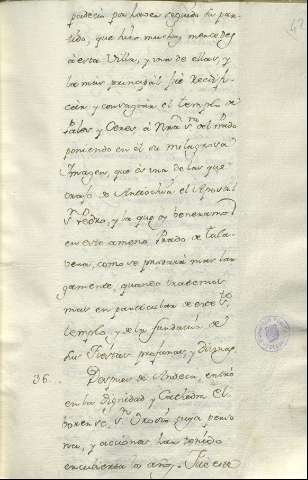 padecia por haver seguido su par-
tido, que hizo muchas mercedes
à esta Villa, y una de ellas, y
la mas principal fue Reedifi-
car, y consagrar el templo de
Palas, y Ceres à Nra Sª del Prado
poniendo en el su milagrosa
Imagen, que es una de las que
trajo de Antiochia el Apostol
Sⁿ Pedro, y la que oy veneramos
en este ameno Prado de tala-
vera, como se provará mas lar-
gamente, quando tratemos
mas en particular de este
templo y de la fundacion de
sus fiestas profanas, y divinas.
36. Despues de entró
en la dignidad y Cathedra el
Sⁿ cuya perso-
na, y acciones han tenido
encubierta los años. Fue este